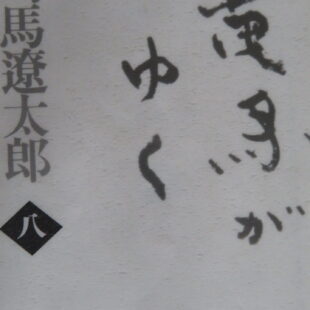 竜馬が
ゆく
馬遼太郎
八